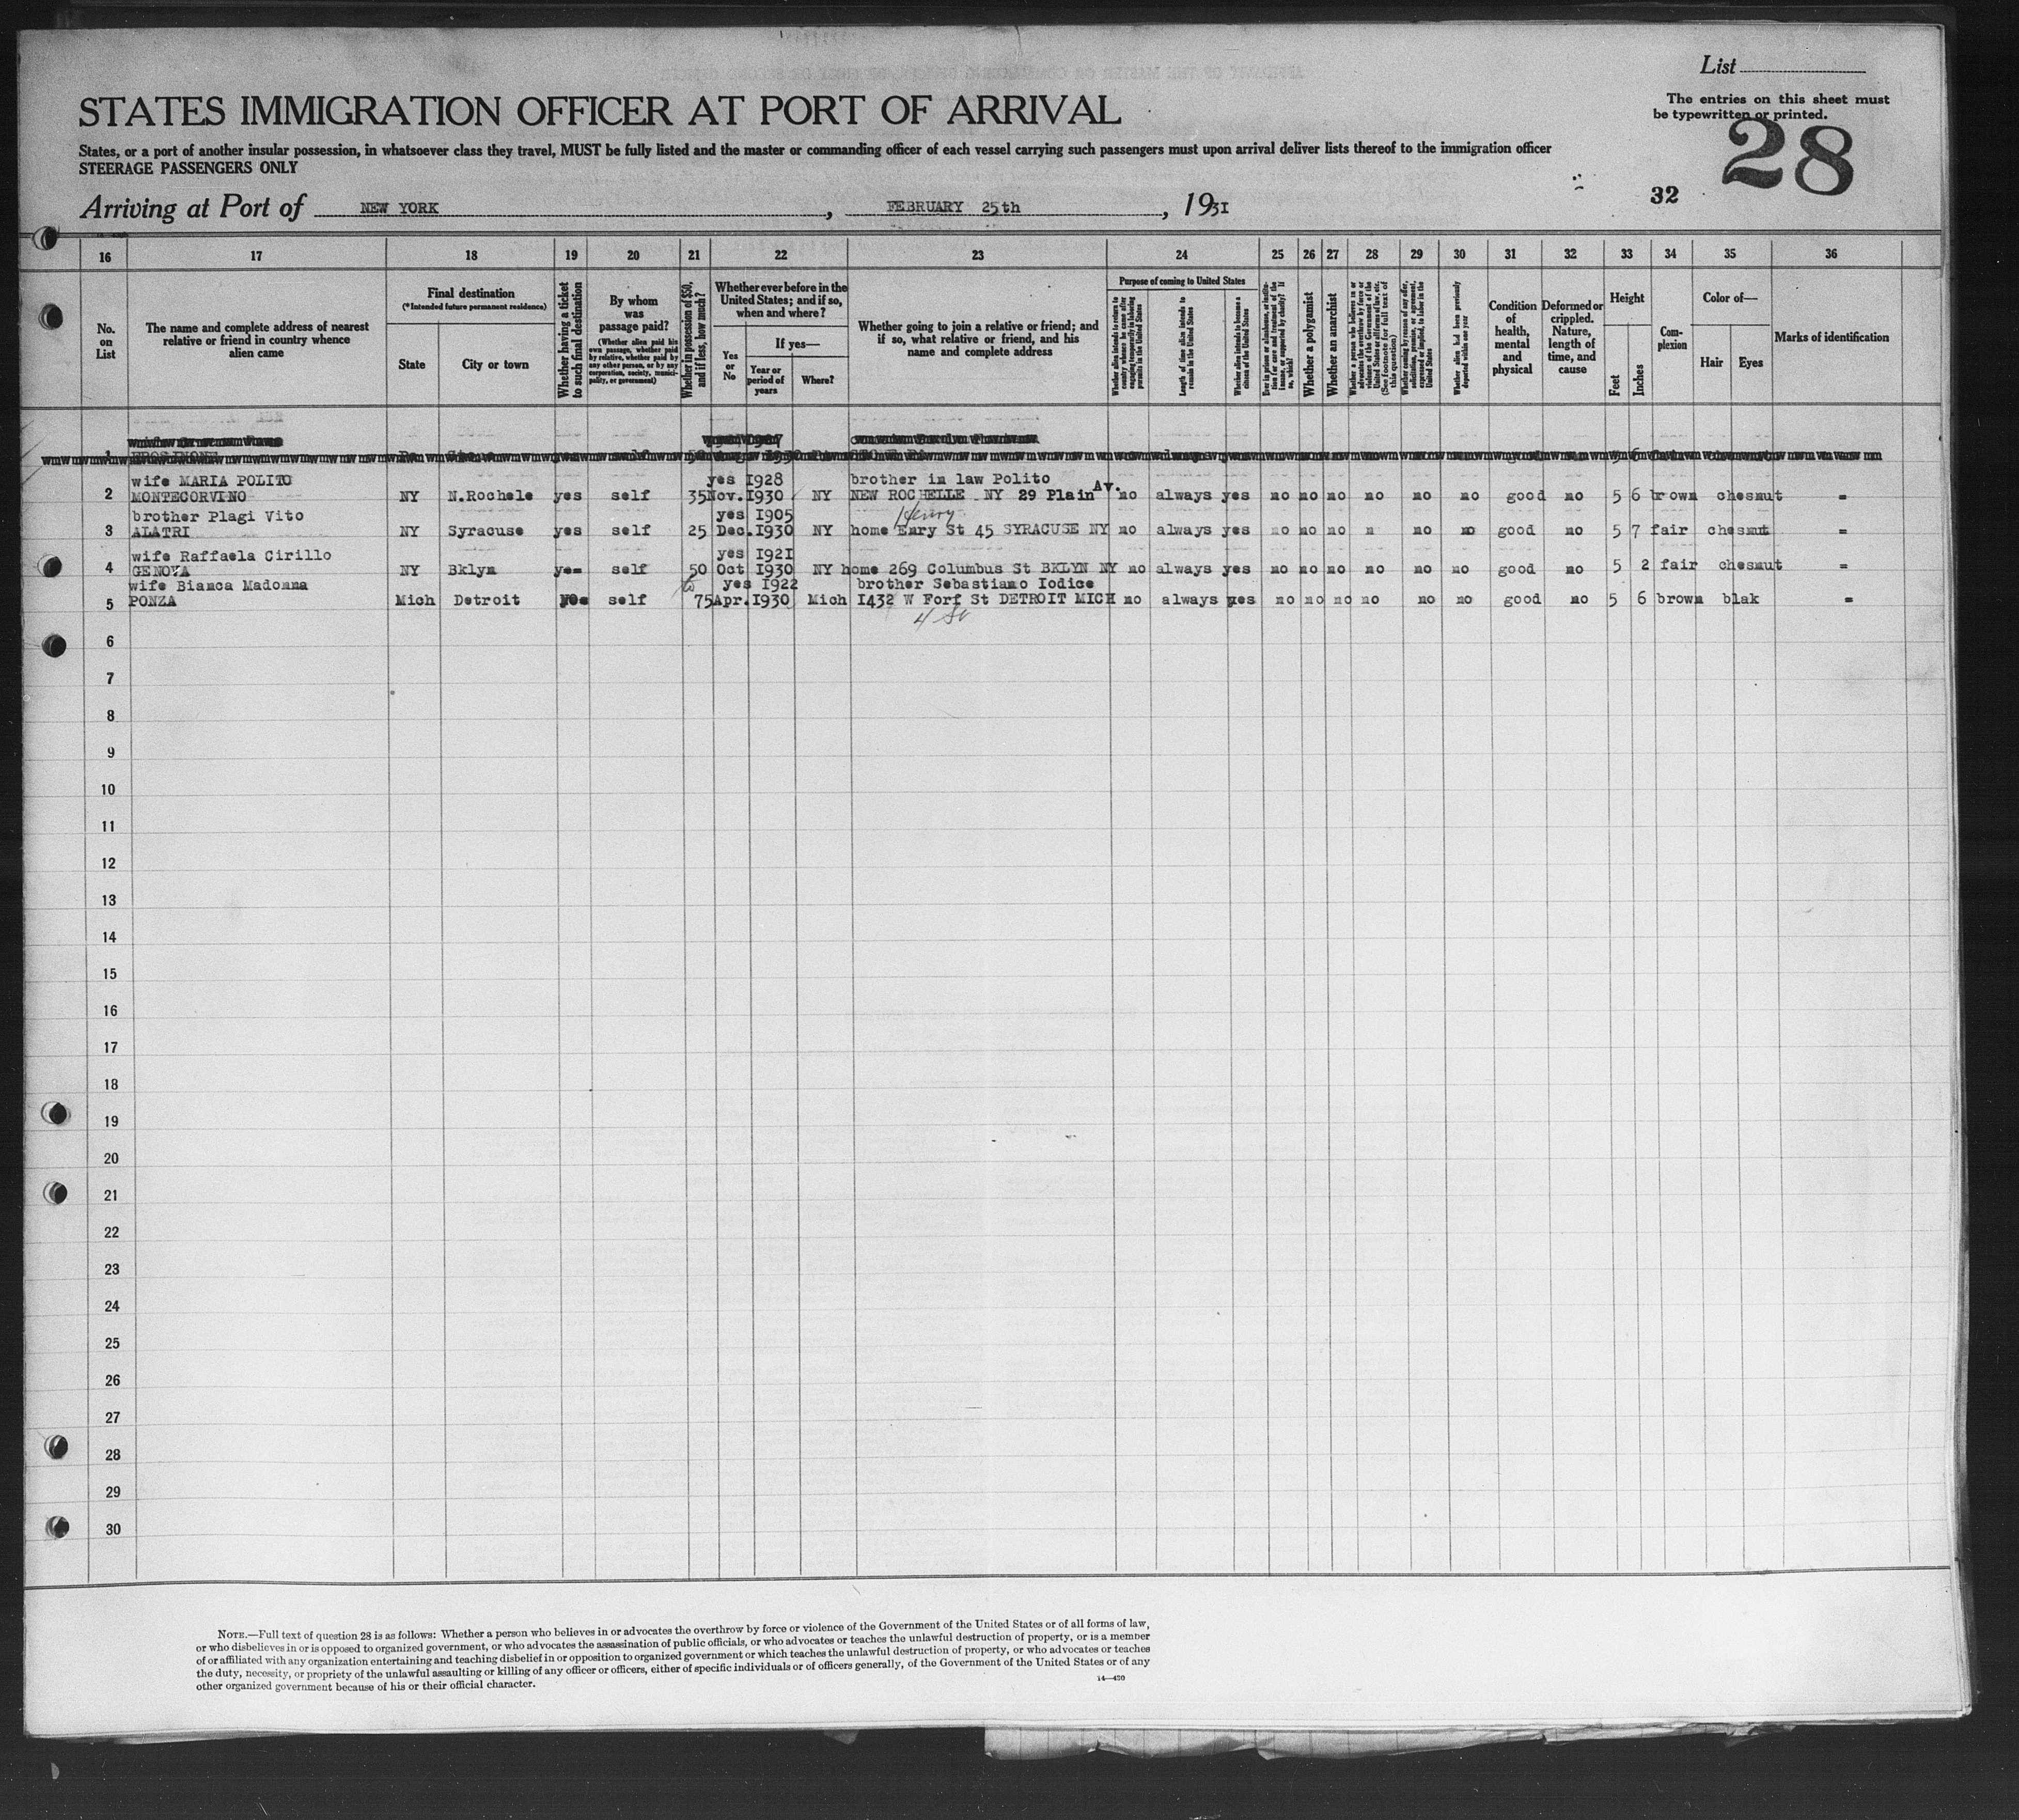 List
The entries on this sheet must
be typewritten or printed.
STATES IMMIGRATION OFFICER AT PORT OF ARRIVAL
28
States, or a port of another insular possession, in whatsoever class they travel, MUST be fully listed and the master or commanding officer of each vessel carrying such passengers must upon arrival deliver lists thereof to the immigration officer
STEERAGE PASSENGERS ONLY
32
Arriving at Port of NEW YORK, FEBRUARY 25th, 1931
16 17 18 19 20 21 22 23 24 25 26 27 28 29 30 31 32 33 34 35 36
No. on List
The name and complete address of nearest relative or friend in country whence alien came
Final destination
(*Intended future permanent residence)
State
City or town
Whether having a ticket to such final destination
By whom was passage paid?
(Whether alien paid his own passage, whether paid by relative, whether paid by any other person, or by any corporation, society, municipality, or government)
Whether in possession of $50, and if less, how much?
Whether ever before in the United States; and if so, when and where?
Yes or No
If yes—
Year or period of years
Where?
Whether going to join a relative or friend; and if so, what relative or friend, and his name and complete address
Purpose of coming to United States
Whether alien intends to return to country whence he came after engaging temporarily in laboring pursuits in the United States
Length of time alien intends to remain in the United States
Whether alien intends to become a citizen of the United States
Ever in prison or almshouse, or institution for care and treatment of the insane, or supported by charity? If so, which?
Whether a polygamist
Whether an anarchist
Whether a person who believes in or advocates the overthrow by force or violence of the Government of the United States or all forms of law, etc. (See footnote for full text of this question)
Whether coming by reason of any offer, solicitation, promise, or agreement, expressed or implied, to labor in the United States
Whether alien had been previously deported within one year
Condition of health, mental and physical
Deformed or crippled. Nature, length of time, and cause
Height
Feet
Inches
Com-plexion
Color of—
Hair
Eyes
Marks of identification
1
wife MARIA POLITO yes 1928 brother in law Polito
2 MONTECORVINO NY N.Rochele yes self 35 Nov.1930 NY NEW ROCHELLE NY 29 Plain Av. no always yes no no no no no no good no 5 6 brown chesnut =
brother Plagi Vito yes 1905 Henry
3 ALATRI NY Syracuse yes self 25 Dec.1930 NY home Enry St 45 SYRACUSE NY no always yes no no no n no no good no 5 7 fair chesnut =
wife Raffaela Cirillo yes 1921
4 GENOVA NY Bklyn yes self 50 Oct 1930 NY home 269 Columbus St BKLYN NY no always yes no no no no no no good no 5 2 fair chesnut =
wife Bianca Madonna to yes 1922 brother Sebastiano Iodice
5 PONZA Mich Detroit yes self 75 Apr.1930 Mich 1432 W Forf St DETROIT MICH no always yes no no no no no no good no 5 6 brown blak =
6
7
8
9
10
11
12
13
14
15
16
17
18
19
20
21
22
23
24
25
26
27
28
29
30
NOTE.—Full text of question 28 is as follows: Whether a person who believes in or advocates the overthrow by force or violence of the Government of the United States or of all forms of law,
or who disbelieves in or is opposed to organized government, or who advocates the assassination of public officials, or who advocates or teaches the unlawful destruction of property, or is a member
of or affiliated with any organization entertaining and teaching disbelief in or opposition to organized government or which teaches the unlawful destruction of property, or who advocates or teaches
the duty, necessity, or propriety of the unlawful assaulting or killing of any officer or officers, either of specific individuals or of officers generally, of the Government of the United States or of any
other organized government because of his or their official character.
14—430